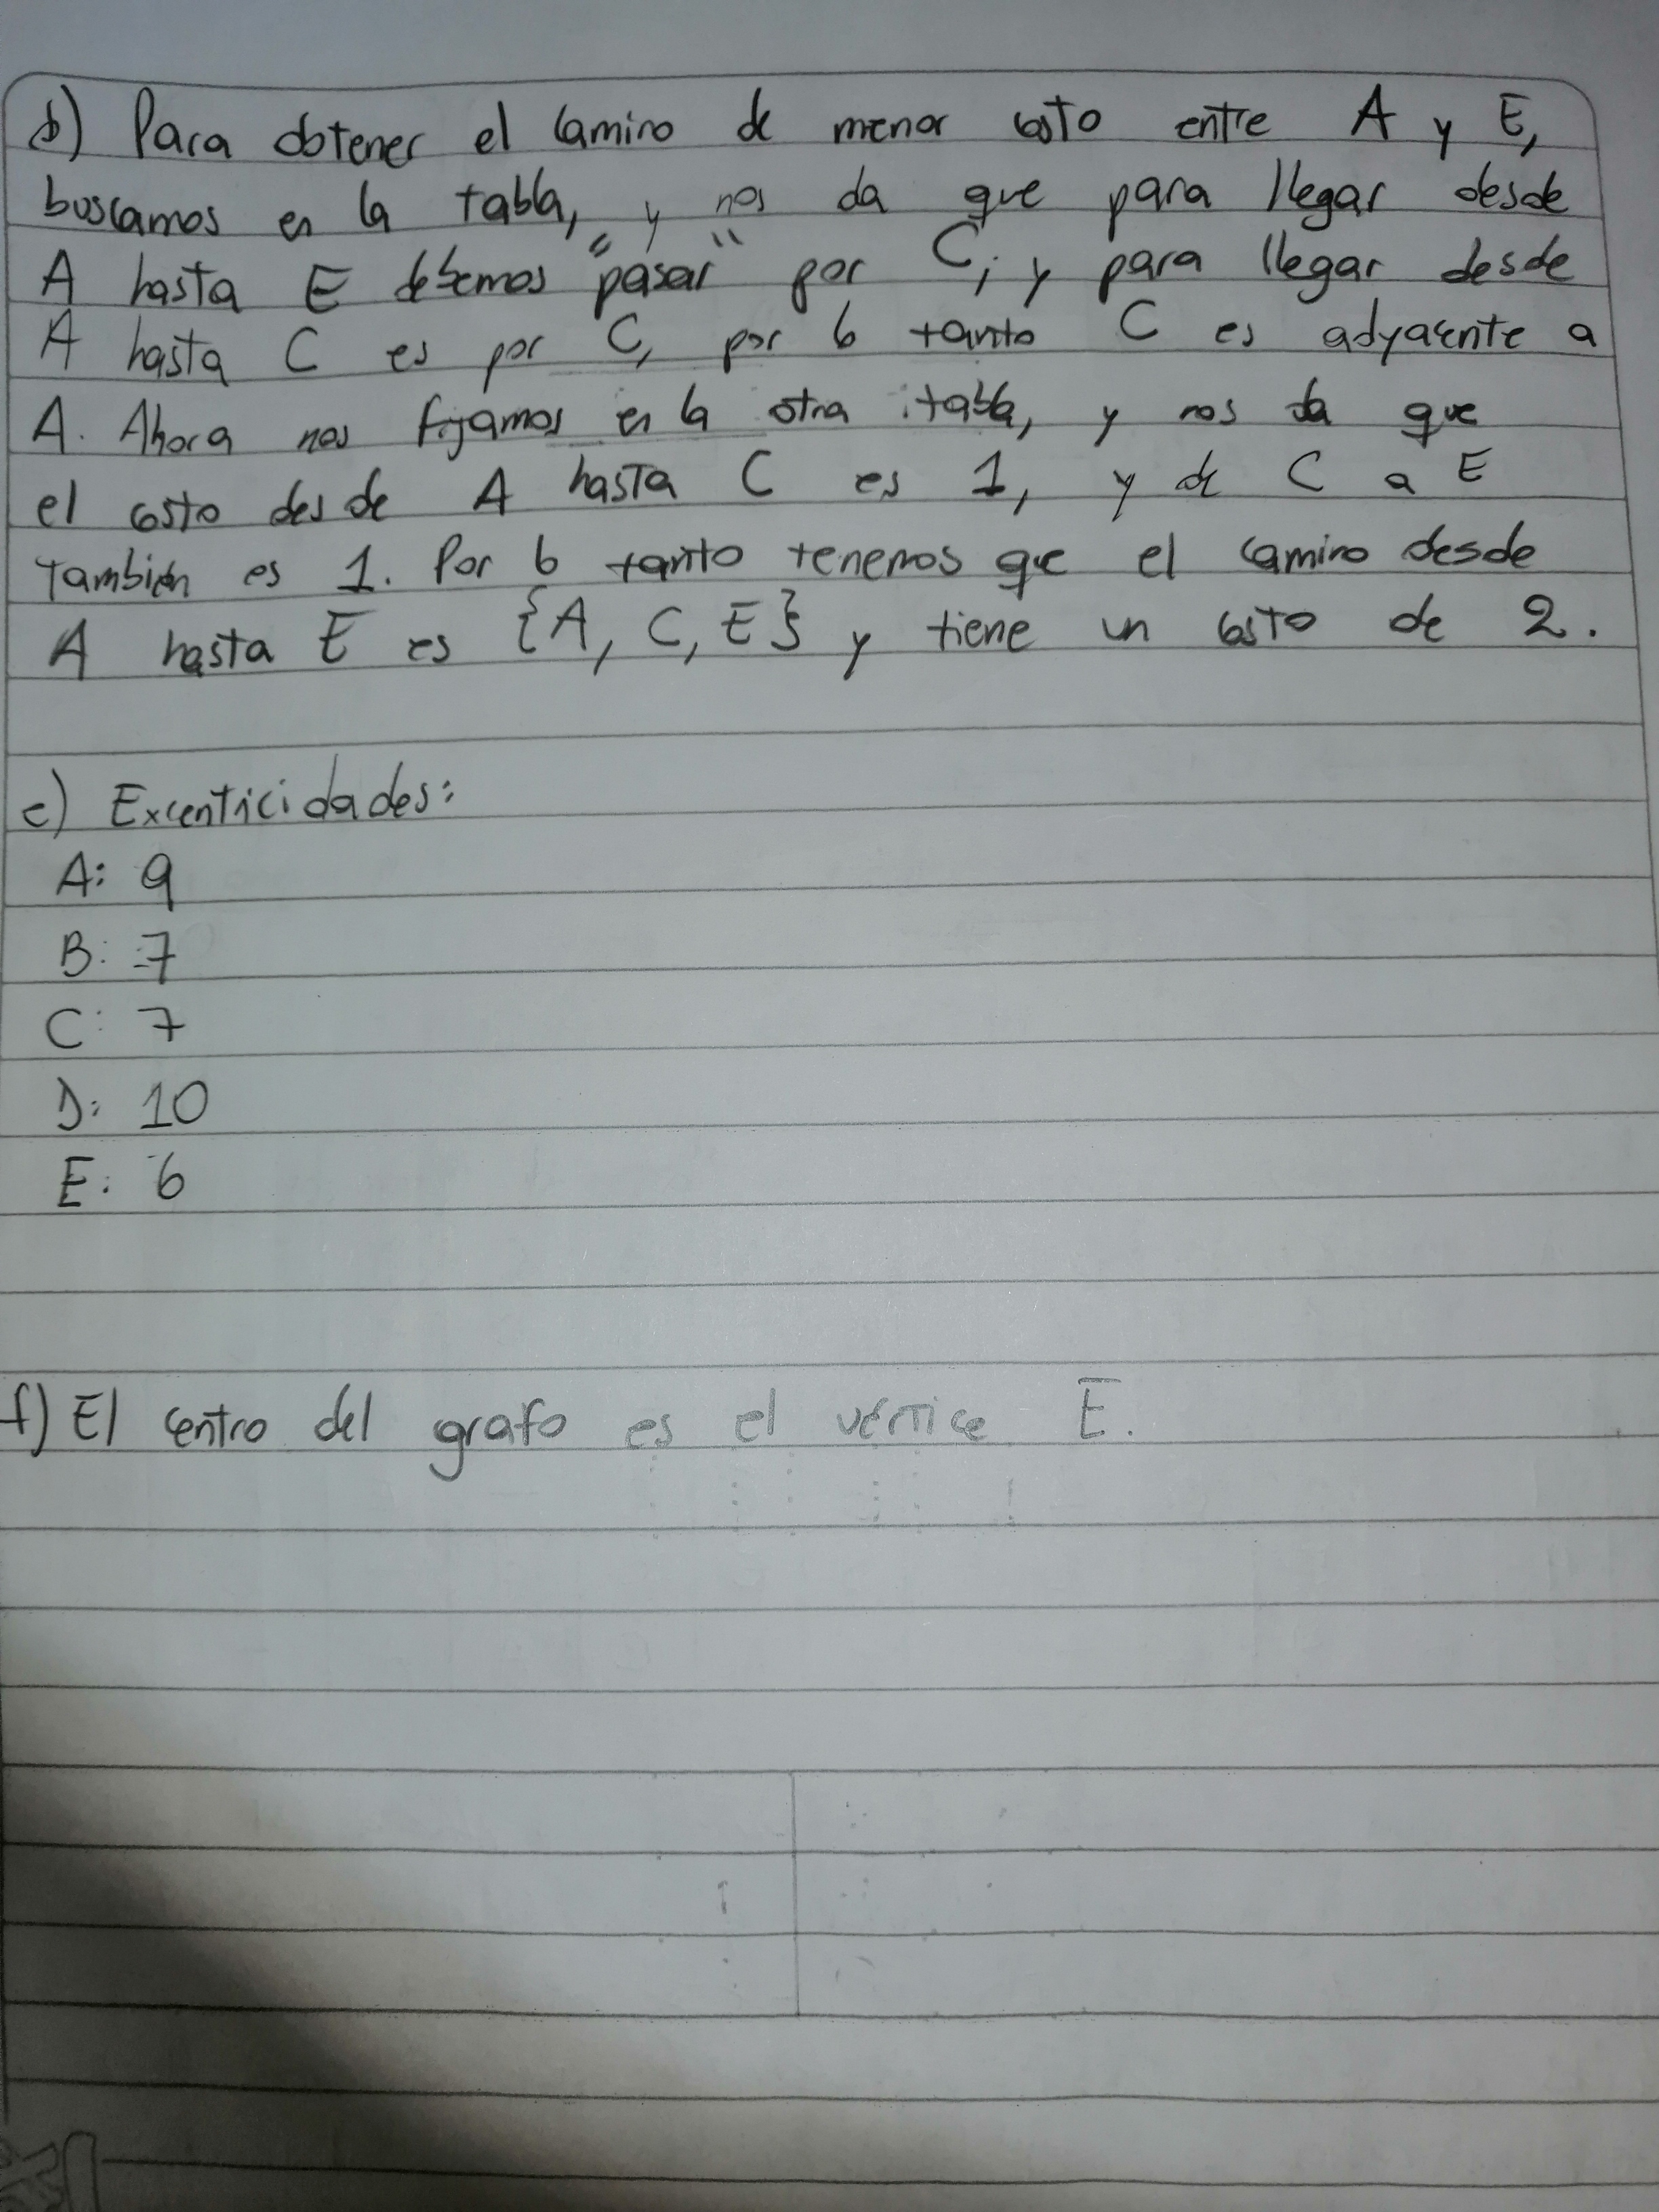 d) Para obtener el camino de menor costo entre A y E,
buscamos en la tabla, y nos da que para llegar desde
A hasta E debemos "pasar" por C, y para llegar desde
A hasta C es por C, por lo tanto C es adyacente a
A. Ahora nos fijamos en la otra tabla, y nos da que
el costo desde A hasta C es 1, y de C a E
también es 1. Por lo tanto tenemos que el camino desde
A hasta E es {A, C, E} y tiene un costo de 2.
e) Excentricidades:
A: 9
B: 7
C: 7
D: 10
E: 6
f) El centro del grafo es el vértice E.